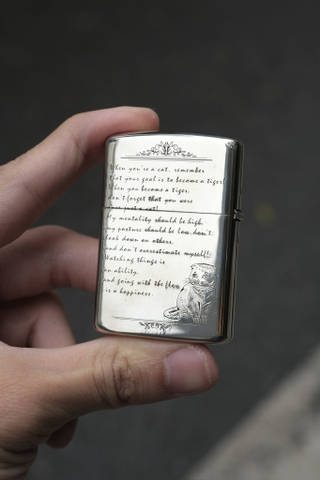 When you're a cat, remember
that your goal is to become a tiger.
When you become a tiger,
don't forget that you were
once just a cat!
My mentality should be high,
my posture should be low, don't
look down on others,
and don't overestimate myself!
Watching things is
an ability,
and going with the flow
is a happiness.